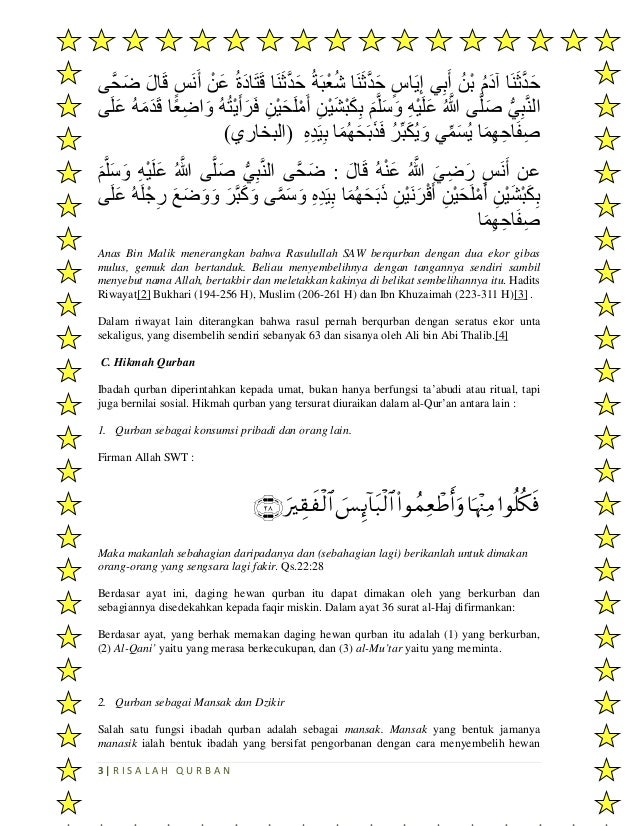 حَدَّثَنَا آدَمُ بْنُ أَبِي إِيَاسٍ حَدَّثَنَا شُعْبَةُ حَدَّثَنَا قَتَادَةُ عَنْ أَنَسٍ قَالَ ضَحَّى
النَّبِيُّ صَلَّى اللَّهُ عَلَيْهِ وَسَلَّمَ بِكَبْشَيْنِ أَمْلَحَيْنِ فَرَأَيْتُهُ وَاضِعًا قَدَمَهُ عَلَى
صِفَاحِهِمَا يُسَمِّي وَيُكَبِّرُ فَذَبَحَهُمَا بِيَدِهِ (البخاري)
عن أَنَسٍ رَضِيَ اللَّهُ عَنْهُ قَالَ : ضَحَّى النَّبِيُّ صَلَّى اللَّهُ عَلَيْهِ وَسَلَّمَ
بِكَبْشَيْنِ أَمْلَحَيْنِ أَقْرَنَيْنِ ذَبَحَهُمَا بِيَدِهِ وَسَمَّى وَكَبَّرَ وَوَضَعَ رِجْلَهُ عَلَى
صِفَاحِهِمَا
Anas Bin Malik menerangkan bahwa Rasulullah SAW berqurban dengan dua ekor gibas
mulus, gemuk dan bertanduk. Beliau menyembelihnya dengan tangannya sendiri sambil
menyebut nama Allah, bertakbir dan meletakkan kakinya di belikat sembelihannya itu. Hadits
Riwayat[2] Bukhari (194-256 H), Muslim (206-261 H) dan Ibn Khuzaimah (223-311 H)[3] .
Dalam riwayat lain diterangkan bahwa rasul pernah berqurban dengan seratus ekor unta
sekaligus, yang disembelih sendiri sebanyak 63 dan sisanya oleh Ali bin Abi Thalib.[4]
C. Hikmah Qurban
Ibadah qurban diperintahkan kepada umat, bukan hanya berfungsi ta’abudi atau ritual, tapi
juga bernilai sosial. Hikmah qurban yang tersurat diuraikan dalam al-Qur’an antara lain :
1. Qurban sebagai konsumsi pribadi dan orang lain.
Firman Allah SWT :
فَكُلُوا۟ مِنْهَا وَأَطْعِمُوا۟ ٱلْبَآئِسَ ٱلْفَقِيرَ ﴿٢٨﴾
Maka makanlah sebahagian daripadanya dan (sebahagian lagi) berikanlah untuk dimakan
orang-orang yang sengsara lagi fakir. Qs.22:28
Berdasar ayat ini, daging hewan qurban itu dapat dimakan oleh yang berkurban dan
sebagiannya disedekahkan kepada faqir miskin. Dalam ayat 36 surat al-Haj difirmankan:
Berdasar ayat, yang berhak memakan daging hewan qurban itu adalah (1) yang berkurban,
(2) Al-Qani’ yaitu yang merasa berkecukupan, dan (3) al-Mu’tar yaitu yang meminta.
2. Qurban sebagai Mansak dan Dzikir
Salah satu fungsi ibadah qurban adalah sebagai mansak. Mansak yang bentuk jamanya
manasik ialah bentuk ibadah yang bersifat pengorbanan dengan cara menyembelih hewan
3 | RISALAH QURBAN